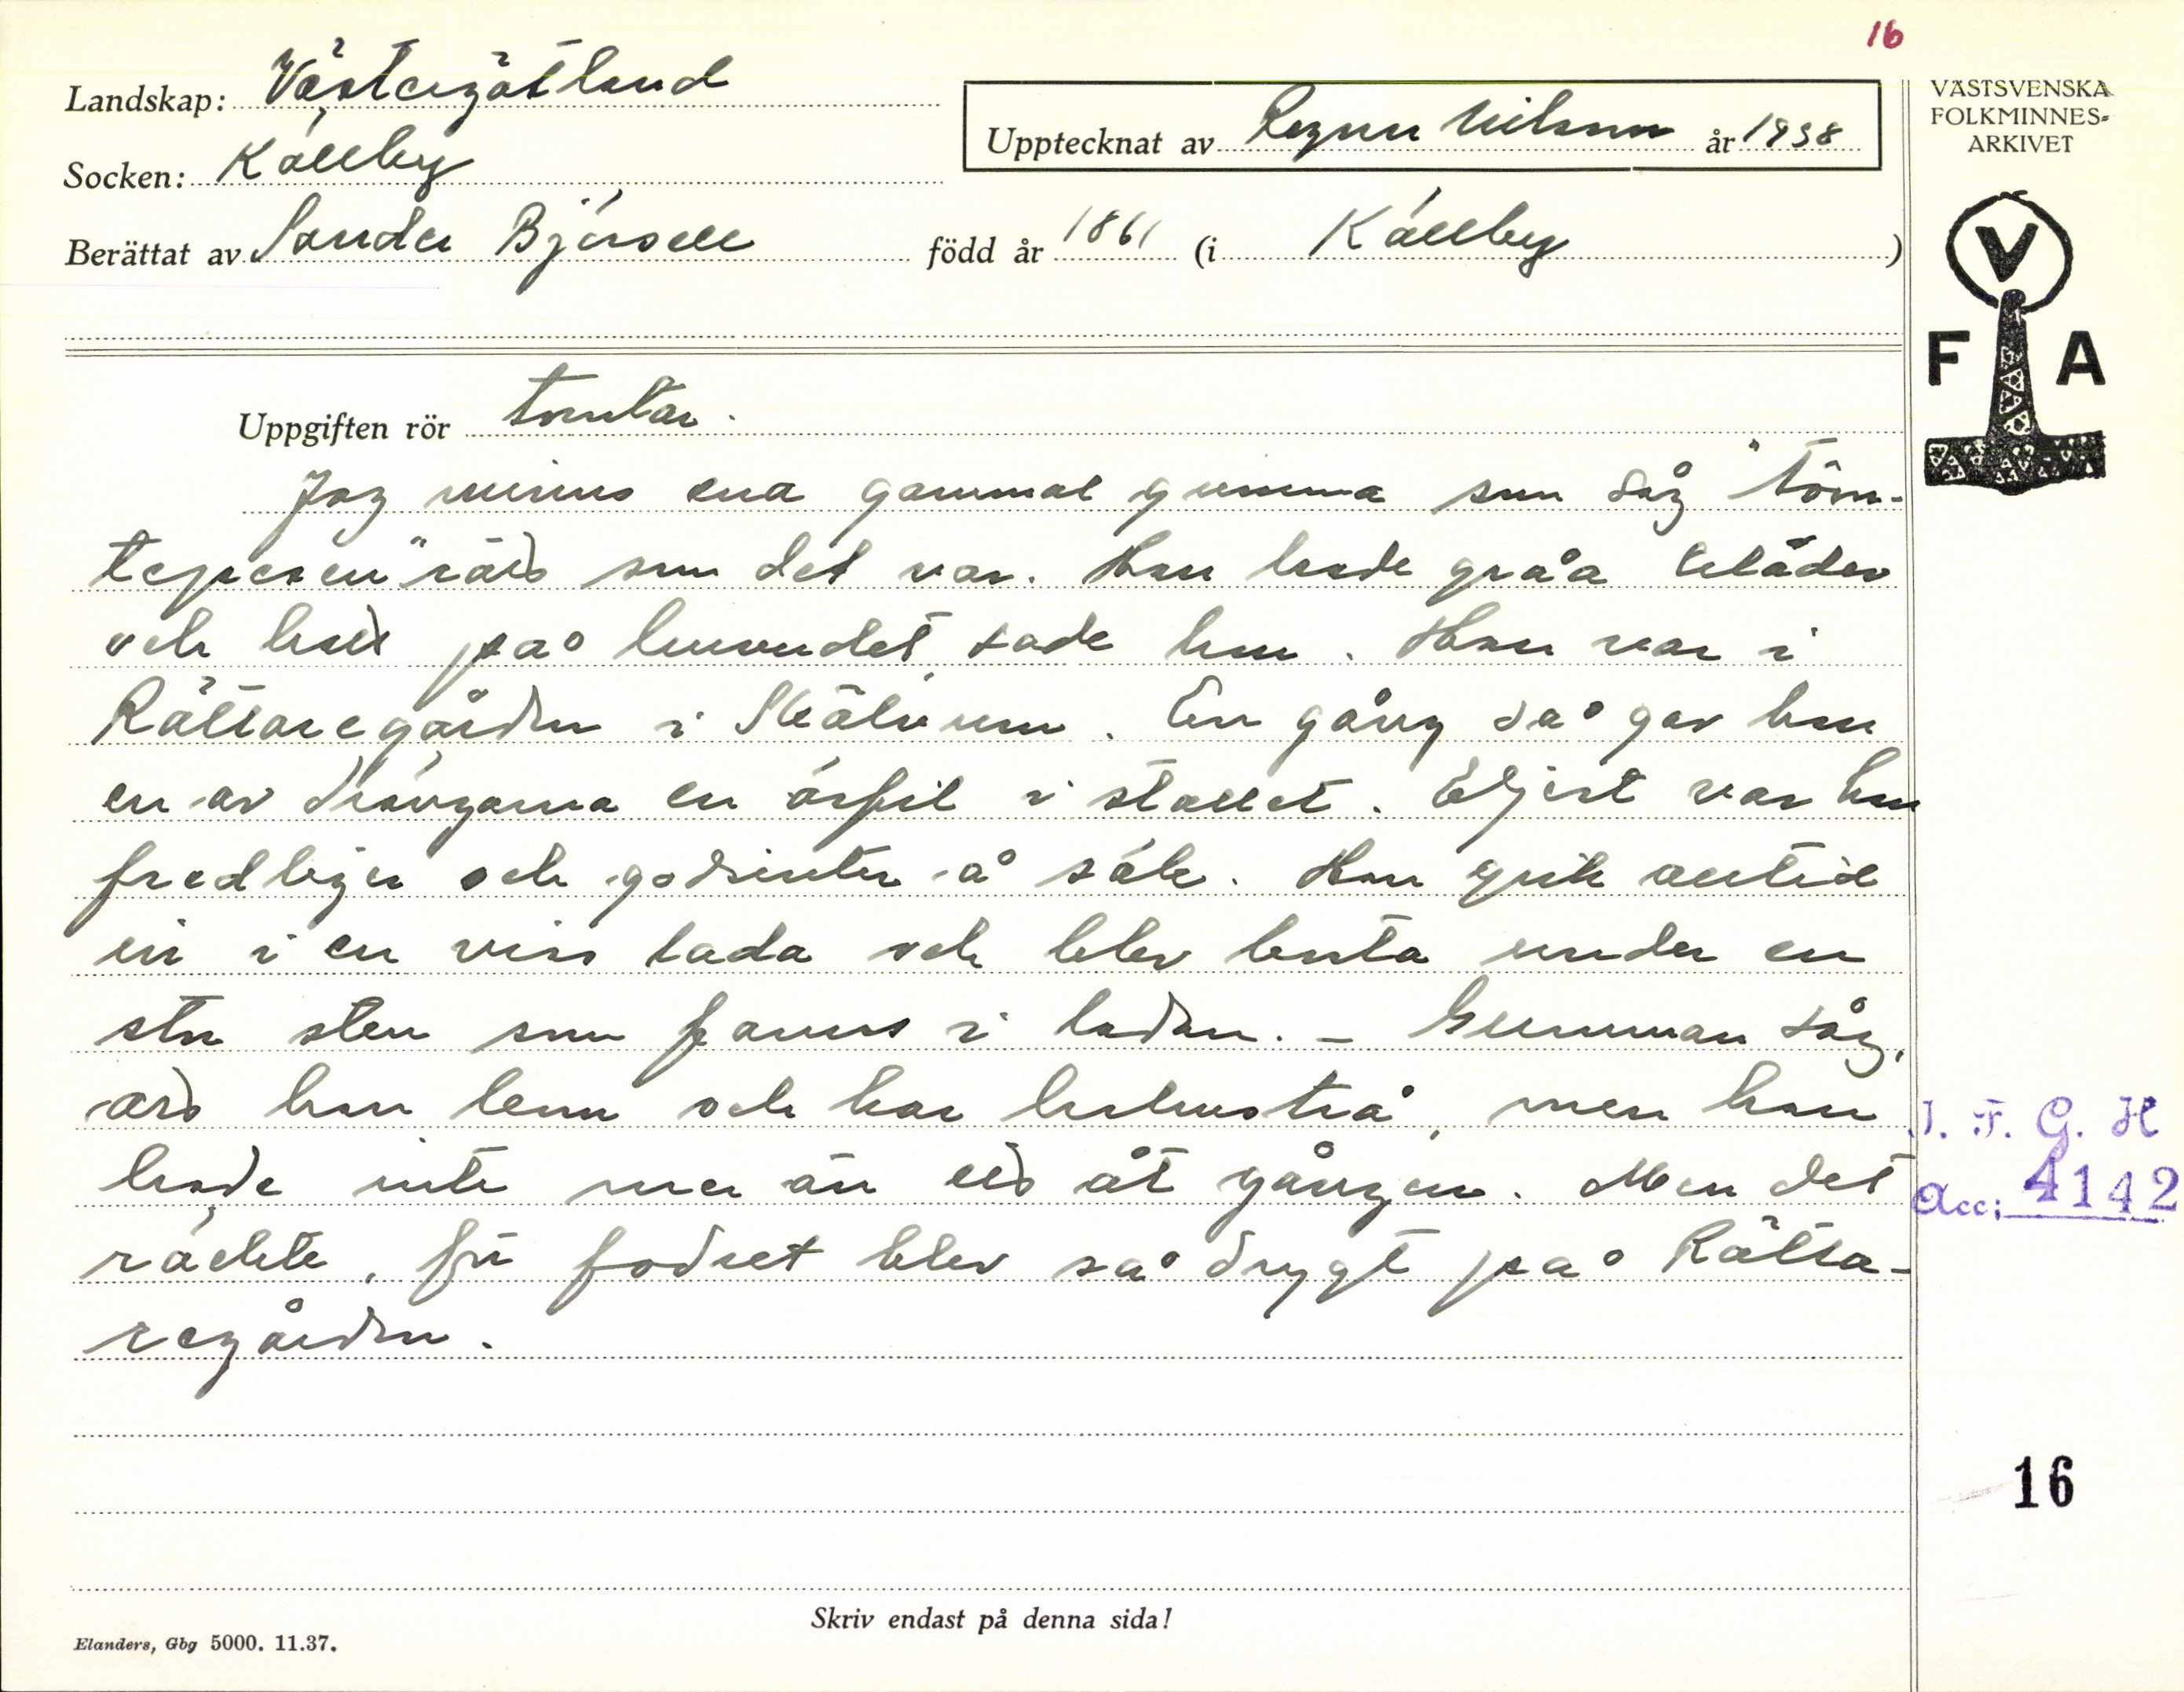 16
Landskap: Västergötland
Socken: Källby
Berättat av Sander Björsell född år 1861 (i Källby)
Upptecknat av Ragnar Nilsson år 1938
VÄSTSVENSKA
FOLKMINNES-
ARKIVET
V
F A
Uppgiften rör tomtar.
Jag minns ena gammal gumma som såg "töm-
tepesen" rätt som det var. Han hade gråa kläder
och hatt på huvudet, sade hon. Han var i
Rättaregården i Skälvum. En gång så gav han
en av drängarna en örfil i stallet. Eljest var han
fredliger och godsinter å sék. Han gick alltid
in i en viss lada och blev borta under en
stor sten som fanns i ladan. – Gumman såg,
att han kom och bar halmstrå, men han
hade inte mer än ett åt gången. Men det
räckte, för fodret blev så drygt på Rätta-
regården.
I. F. G. H
Acc: 4142
16
Skriv endast på denna sida!
Elanders, Gbg 5000. 11.37.